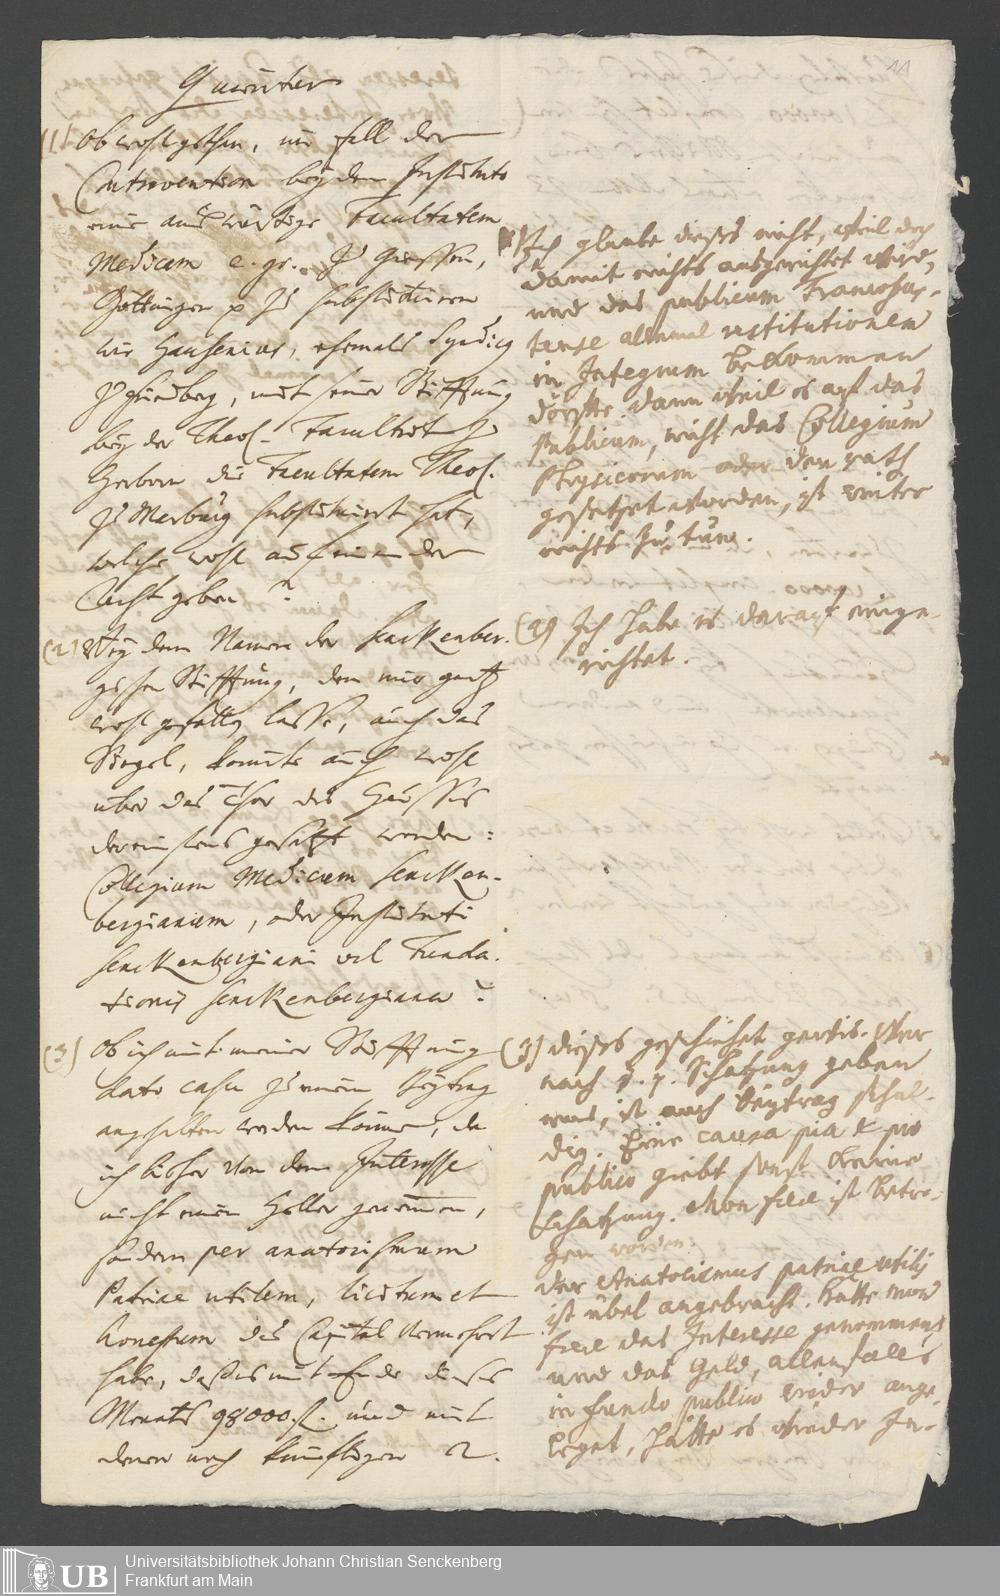 11
Quaeritur
(1) Ob wohl gethan, im fall der
Contravention bey dem Instituto
eine auswärtige Facultatem
Medicam e. gr. zu Giessen,
Göttingen p zu substituiren
wie Hausenius, ehemals Syndicus
zu Friedberg, mit seiner Stifftung
bey der Theol. Facultät zu
Herborn die Facultatem Theol.
zu Marburg substituirt hat,
welche wohl auf einander
Acht geben?
(2) Bey dem Namen der Senckenber-
gischen Stifftung, den mir gantz
wohl gefallen lasse, auch das
Siegel, könnte auch wohl
über das Thor des Hausses
dereinstens gesetzt werden:
Collegium Medicum Sencken-
bergianum, oder Instituti
Senckenbergiani vel Funda-
tionis Senckenbergianae?
(3) Ob ich mit meiner Stifftung
dato casu zu einem Beytrag
angehalten werden könne, da
ich bisher von dem Interesse
nicht einen Heller genommen,
sondern per anatocismum
Patriae utilem, licitum et
honestum das Capital vermehret
habe, dass es mit Ende dieses
Monats 98000 fl. und mit
denen noch künfftigen 2.
(1) Ich glaube dieses nicht, weil doch
damit nichts ausgerichtet wird,
und das publicum Francofur-
tense allemal restitutionem
in Integrum bekommen
dörffte. dann weil es auf das
Publicum, nicht das Collegium
Physicorum oder den rath
gesetzet worden, ist weiter
nichts zu tun.
(2) Ich habe es darauf einge-
richtet.
(3) dieses geschiehet gewis. Wer
nach d. 7. Schatzung geben
mus, ist auch Beytrag schul-
dig. Eine causa pia & pro
publico giebt sonst keine
Schatzung. Mon frere ist betro-
gen worden.
der Anatocismus patriae utilis
ist übel angebracht. hätte mon
frere das Interesse genommen
und das Geld, allenfalls
in fundo publico wieder ange-
leget, hätte es wieder In-
Universitätsbibliothek Johann Christian Senckenberg
Frankfurt am Main
UB